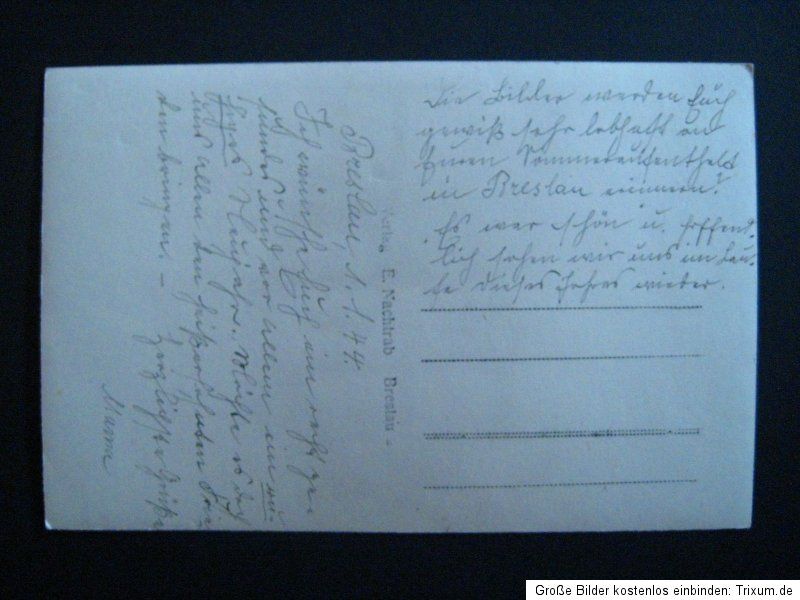 Breslau, 1. 1. 44.
Ich wünsche Euch ein recht ge-
sundes und vor allem ein ru-
higes Neujahr. Möchte es doch
uns allen den heißersehnten Frie-
den bringen. –
Herzlichste Grüße
Mama
Verlag E. Nachtrab Breslau
Die Bilder werden Euch
gewiß sehr lebhaft an
Euren Sommeraufenthalt
in Breslau erinnern!
Es war schön u. hoffent-
lich sehen wir uns im Lau-
fe dieses Jahres wieder.
Große Bilder kostenlos einbinden: Trixum.de